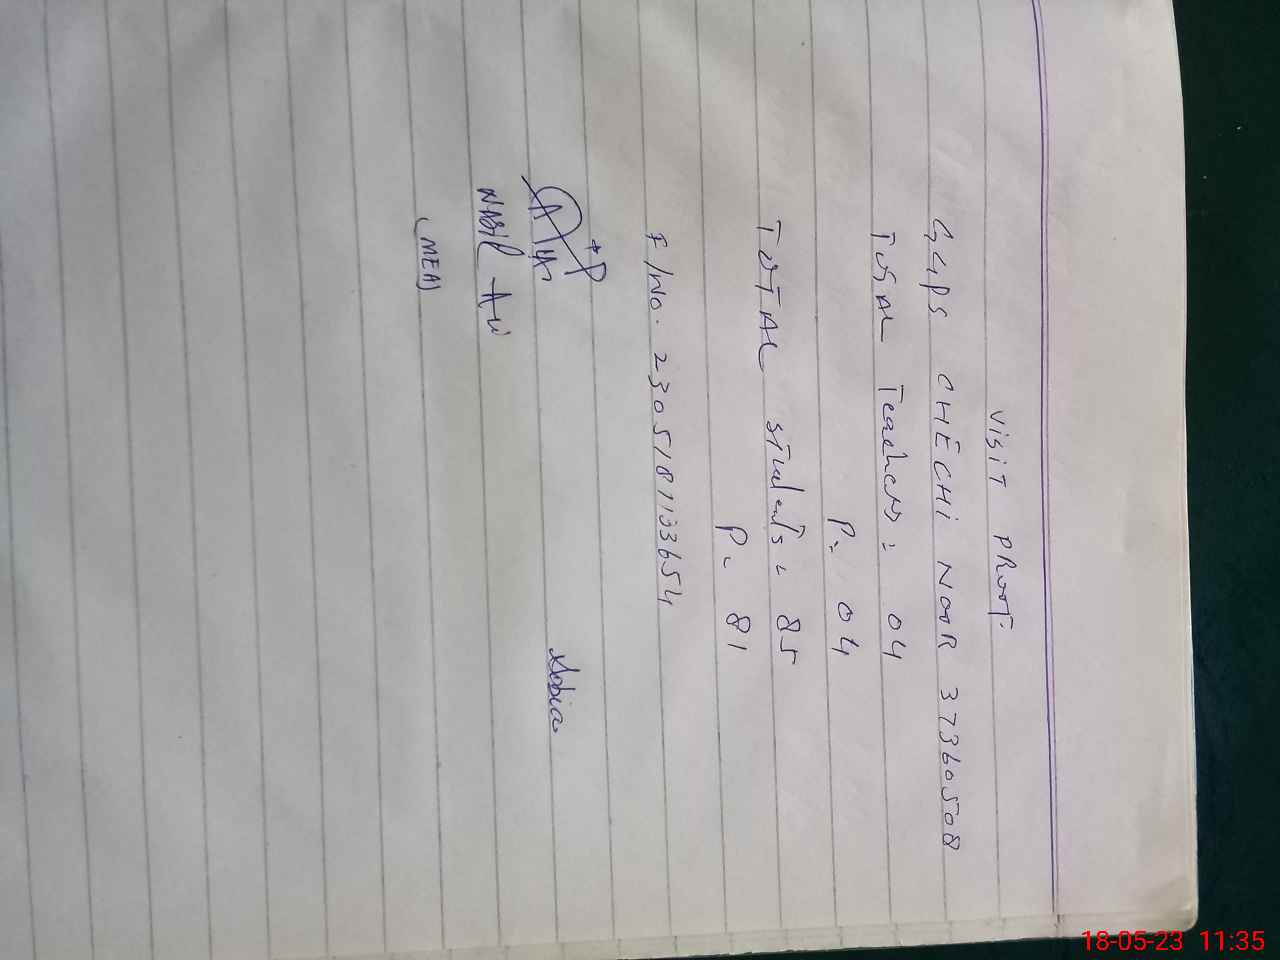 VISIT PROOF.
GGPS CHECHI NOOR 37360508
TOTAL Teachers = 04
P= 04
TOTAL Students = 85
P= 81
F/No. 2305181133654
NABIL Ali
(MEA)
18-05-23 11:35